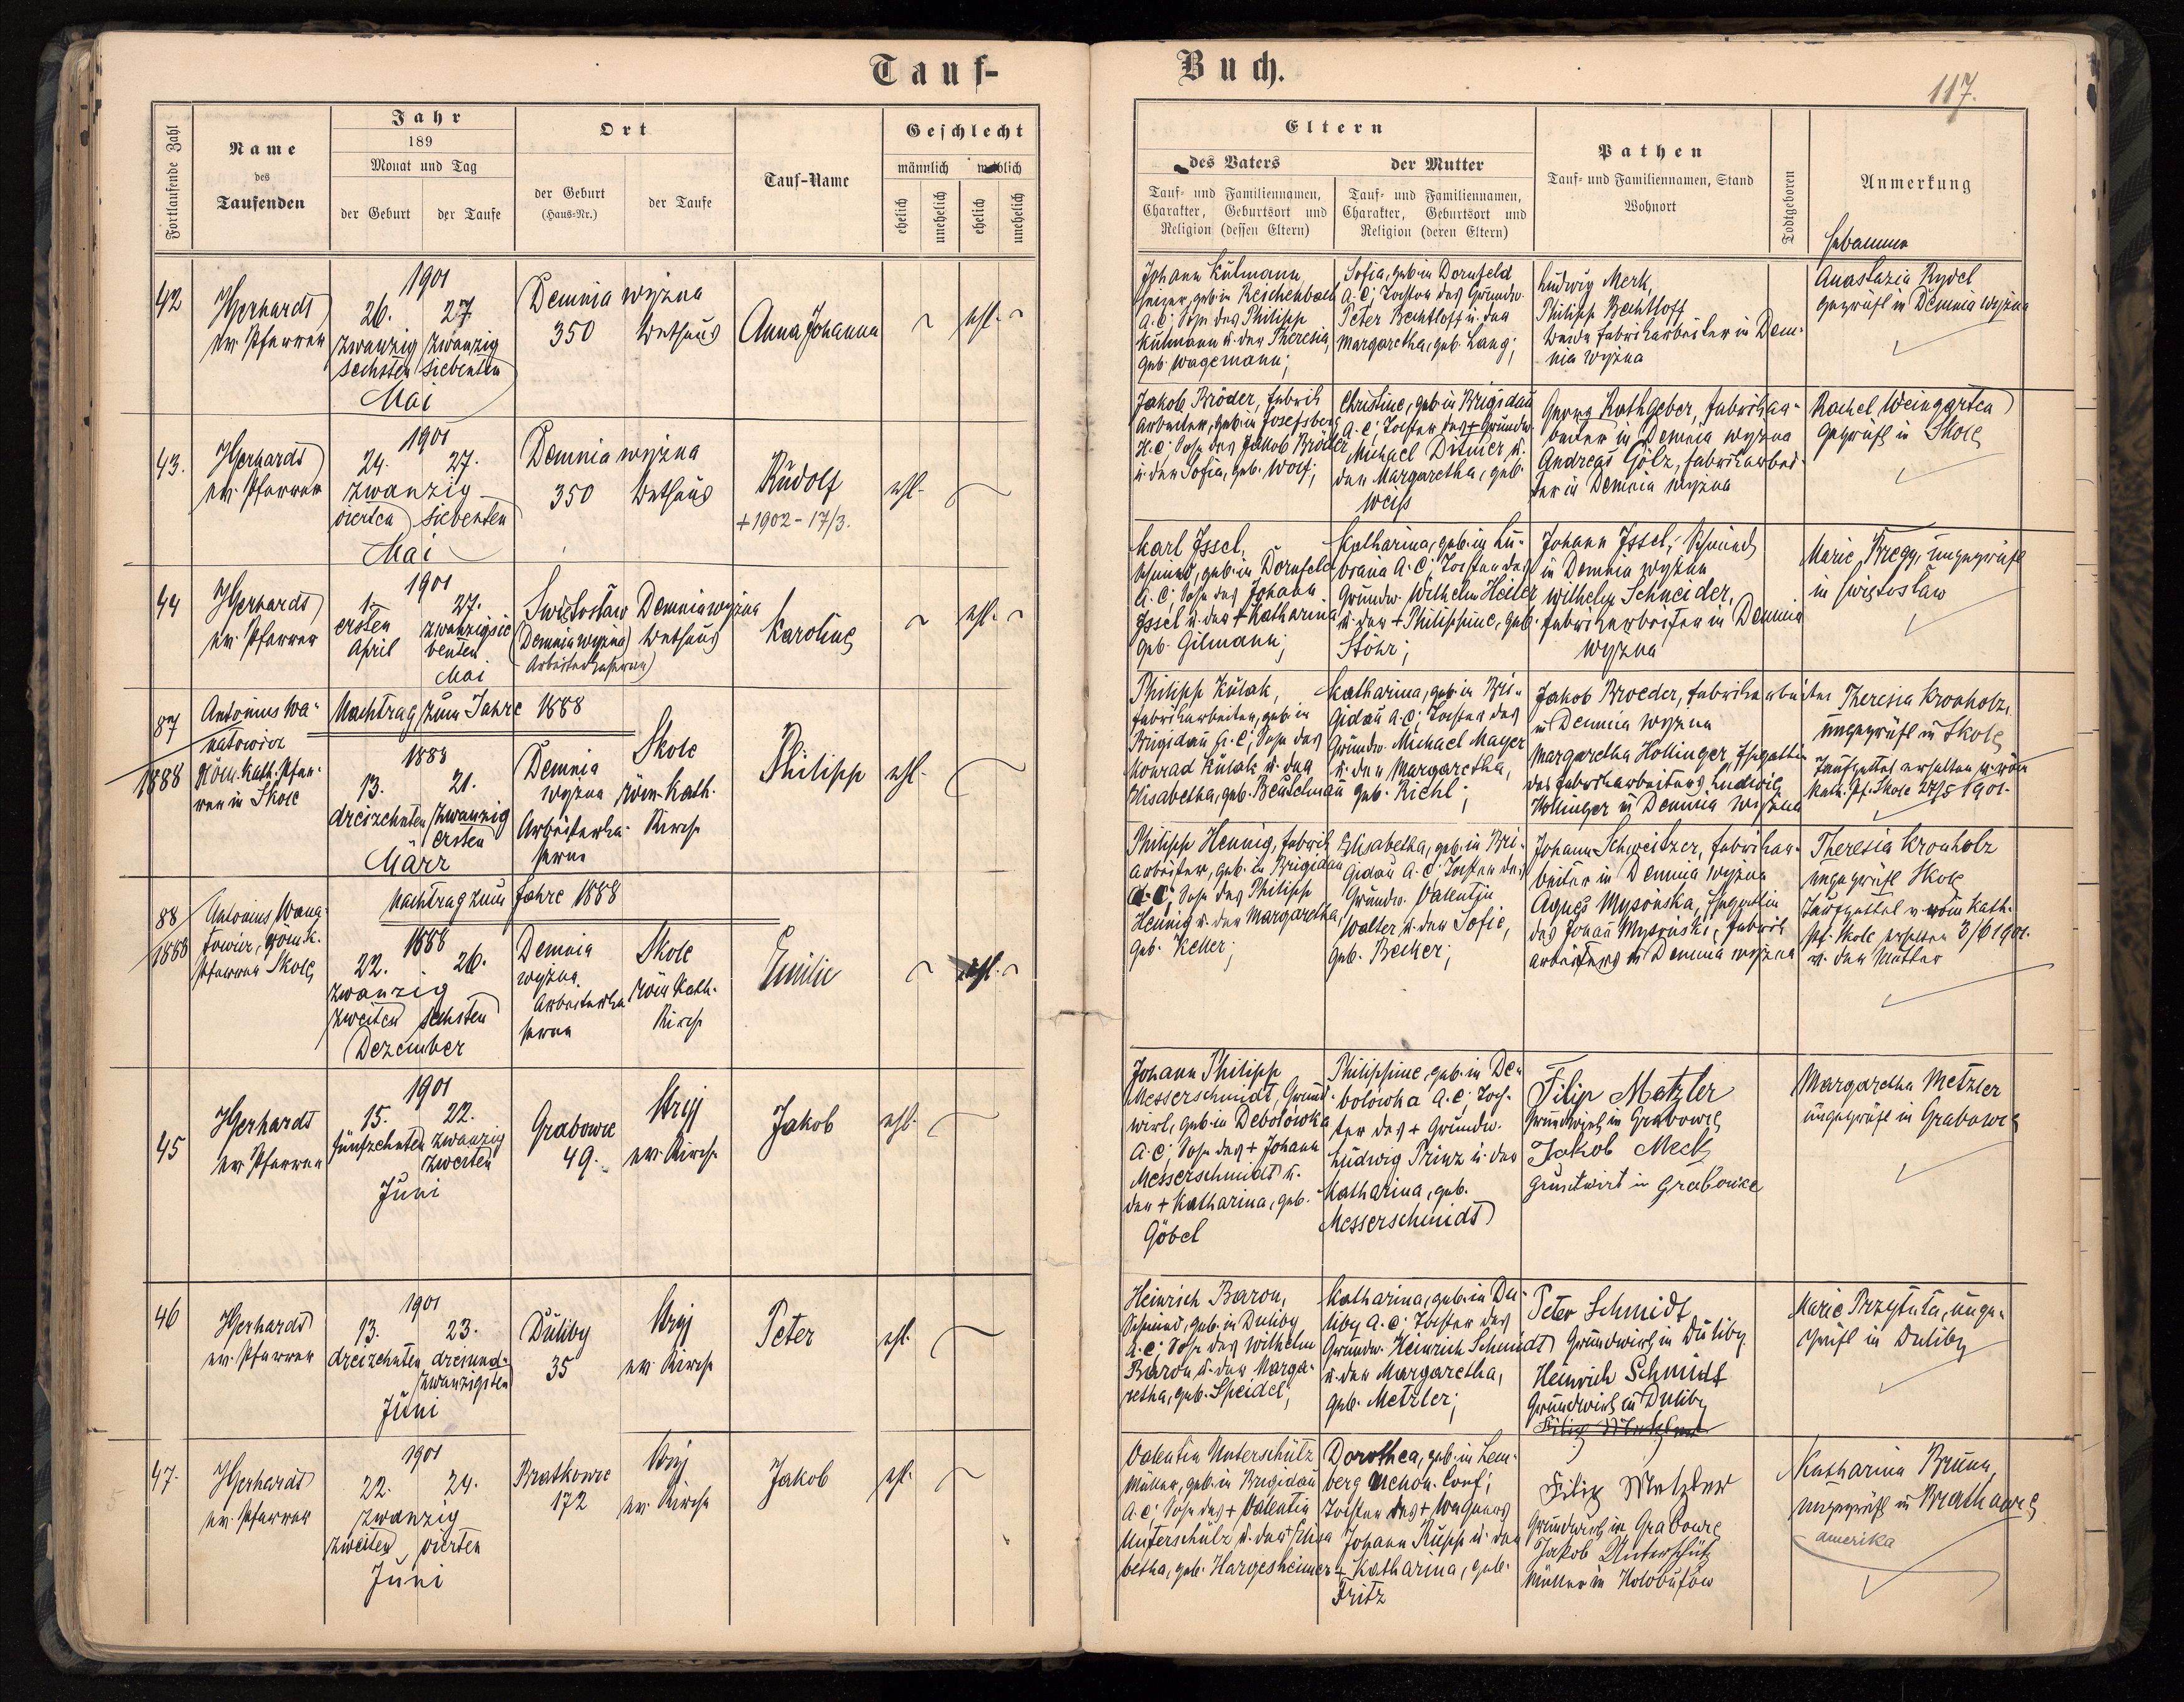 Tauf-
Buch.
117.
Fortlaufende Zahl
Name
des
Taufenden
Jahr
189
Monat und Tag
der Geburt
der Taufe
Ort
der Geburt
(Haus-Nr.)
der Taufe
Tauf-Name
Geschlecht
männlich
weiblich
ehelich
unehelich
ehelich
unehelich
Eltern
des Vaters
Tauf- und Familiennamen,
Charakter, Geburtsort und
Religion (dessen Eltern)
der Mutter
Tauf- und Familiennamen,
Charakter, Geburtsort und
Religion (deren Eltern)
Pathen
Tauf- und Familiennamen, Stand
Wohnort
Todtgeboren
Anmerkung
Hebamme
42
Gerhardt
ev. Pfarrer
1901
26. 27.
zwanzig zwanzig
sechsten siebenten
Mai
Demnia wyżna
350 Bethaus
Anna Johanna
ehl.
Johann Kulmann
Heizer, geb. in Reichenbach
A. C., Sohn des Philipp
Kulmann u. der Theresia,
geb. Wagemann;
Sofia, geb. in Dornfeld
A. C., Tochter des Grundw.
Peter Bechtloff u. der
Margaretha, geb. Lang;
Ludwig Merk,
Philipp Bechtloff
beide Fabrikarbeiter in Dem-
nia wyżna
Anastazia Rydel
geprüft in Demnia wyżna
43.
Gerhardt
ev. Pfarrer
1901
24. 27.
zwanzig
vierten siebenten
Mai
Demnia wyżna
350 Bethaus
Rudolf
+ 1902 - 17/3.
ehl.
Jakob Bröder, Fabrik
arbeiter, geb. in Josefsberg
H. C., Sohn des Jakob Bröder
u. der Sofia, geb. Wolf;
Christine, geb. in Brigidau
A. C., Tochter des + Grundw.
Michael Diemer u.
der Margaretha, geb.
Weiß
Georg Rathgeber, Fabrikar-
beiter in Demnia wyżna
Andreas Gölz, Fabrikarbei-
ter in Demnia wyżna
Rachel Weingarten
geprüft in Skole
44
Gerhardt
ev. Pfarrer
1901
1. 27.
ersten zwanzigsie
April benten
Mai
Świętosław Demnia wyżna
(Demnia wyżna) Bethaus
Arbeiterkaserne)
Karoline
ehl.
Karl Issel,
Schmied, geb. in Dornfeld
A. C., Sohn des Johann
Issel u. der + Katharina
geb. Gilmann;
Katharina, geb. in Ku-
brana A. C., Tochter des
Grundw. Wilhelm Heiler
u. der + Philippine, geb.
Stöhr;
Johann Issel, Schmied
in Demnia wyżna
Wilhelm Schneider,
Fabrikarbeiter in Demnia
wyżna
Marie Bregy, ungeprüft
in Świętosław
87
1888
Antonius Wa-
natowicz
Röm. kath. Pfar-
rer in Skole
Nachtrag zum Jahre 1888
1888
13. 21.
dreizehnten zwanzig
ersten
März
Demnia
wyżna
Arbeiterka-
serne
Skole
röm. kath.
Kirche
Philipp
ehl.
Philipp Kulak,
Fabrikarbeiter, geb. in
Brigidau A. C., Sohn des
Konrad Kulak u. der
Elisabetha, geb. Beutelmann
Katharina, geb. in Bri-
gidau A. C., Tochter des
Grundw. Michael Mayer
u. der Margaretha,
geb. Riehl;
Jakob Broeder, Fabrikarbeiter
in Demnia wyżna
Margaretha Hollinger, Ehegattin
des Fabrikarbeiters Ludwig
Hollinger in Demnia wyżna
Theresia Kronholz,
ungeprüft in Skole
Taufzettel erhalten v. röm
kath. Pf. Skole 27/5 1901.
88
1888
Antonius Wana
towicz, röm. k.
Pfarrer Skole
Nachtrag zum Jahre 1888
1888
22. 26.
zwanzig
zweiten sechsten
Dezember
Demnia
wyżna
Arbeiterka
serne
Skole
röm. kath.
Kirche
Emilie
ehl.
Philipp Hennig, Fabrik
arbeiter, geb. in Brigidau
A. C., Sohn des Philipp
Hennig u. der Margaretha,
geb. Keller;
Elisabetha, geb. in Bri-
gidau A. C., Tochter des
Grundw. Valentin
Walter u. der Sofie,
geb. Becker;
Johann Schweitzer, Fabrikar-
beiter in Demnia wyżna
Agnes Mysońska, Ehegattin
des Johann Mysoński, Fabrik
arbeiters in Demnia wyżna
Theresia Kronholz
ungeprüft Skole
Taufzettel v. röm kath.
Pf. Skole erhalten 3/6 1901.
v. der Mutter
45
Gerhardt
ev. Pfarrer
1901
15. 22.
fünfzehnten zwanzig
zweiten
Juni
Grabowce
49.
Stryj
ev. Kirche
Jakob
ehl.
Johann Philipp
Messerschmidt, Grund-
wirt, geb. in Debolówka
A. C., Sohn des + Johann
Messerschmidt u.
der + Katharina, geb.
Göbel
Philippine, geb. in De-
bolowka A. C., Toch-
ter des + Grundw.
Ludwig Prinz u. der
Katharina, geb.
Messerschmidt
Filip Metzler
Grundwirt in Grabowce
Jakob Meck
Gruntwirt in Grabowce
Margaretha Metzler
ungeprüft in Grabowce
46
Gerhardt
ev. Pfarrer
1901
13. 23.
dreizehnten dreiund-
zwanzigsten
Juni
Duliby
35
Stryj
ev. Kirche
Peter
ehl.
Heinrich Baron,
Schmied, geb. in Duliby
A. C., Sohn des Wilhelm
Baron u. der Marga-
retha, geb. Speidel;
Katharina, geb. in Du-
liby A. C., Tochter des
Grundw. Heinrich Schmidt
u. der Margaretha,
geb. Metzler;
Peter Schmidt
Grundwirt in Duliby
Heinrich Schmidt
Grundwirt in Duliby
Filip Metzler
Marie Przytuła, unge-
prüft in Duliby
47.
Gerhardt
ev. Pfarrer
1901
22. 24.
zwanzig
zweiten vierten
Juni
Bratkowce
172
Stryj
ev. Kirche
Jakob
ehl.
Valentin Unterschütz
Müller, geb. in Brigidau
A. C., Sohn des + Valentin
Unterschütz u. der + Elisa
betha, geb. Hargesheimer
Dorothea, geb. in Lem-
berg Menon. Conf.;
Tochter des + Wagners
Johann Rupp u. der
+ Katharina, geb.
Fritz
Filip Metzler
Grundwirt in Grabowce
Jakob Unterschütz
Müller in Hołobutów
Katharina Brunn,
ungeprüft in Bratkowce
Amerika